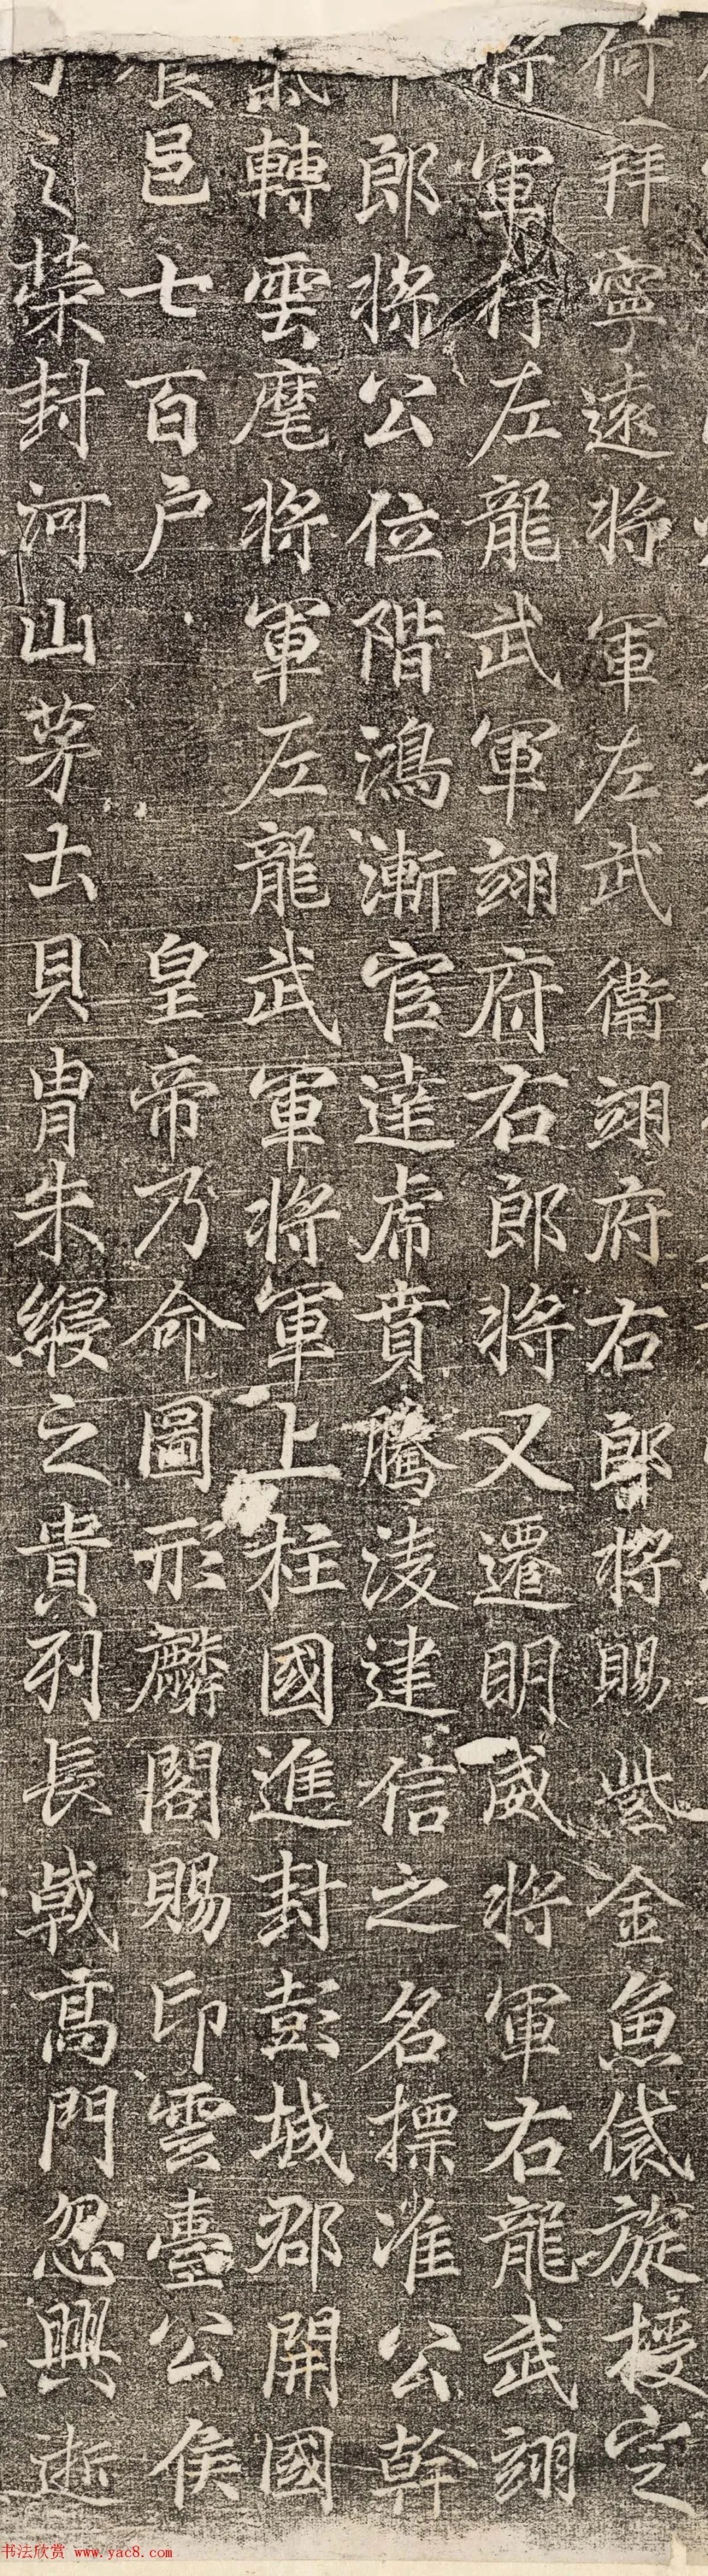 何拜寧遠將軍左武衛翊府右郎將賜紫金魚袋旋授定
將軍行左龍武軍翊府右郎將又遷明威將軍右龍武翊
郎將公位階鴻漸官達虎賁騰淩建信之名摽淮公幹
轉雲麾將軍左龍武軍將軍上柱國進封彭城郡開國
邑七百户 皇帝乃命圖形麟閣賜印雲臺公侯
之榮封河山茅土貝胄朱綬之貴列長戟高門忽興逝
书法欣赏 www.yac8.com